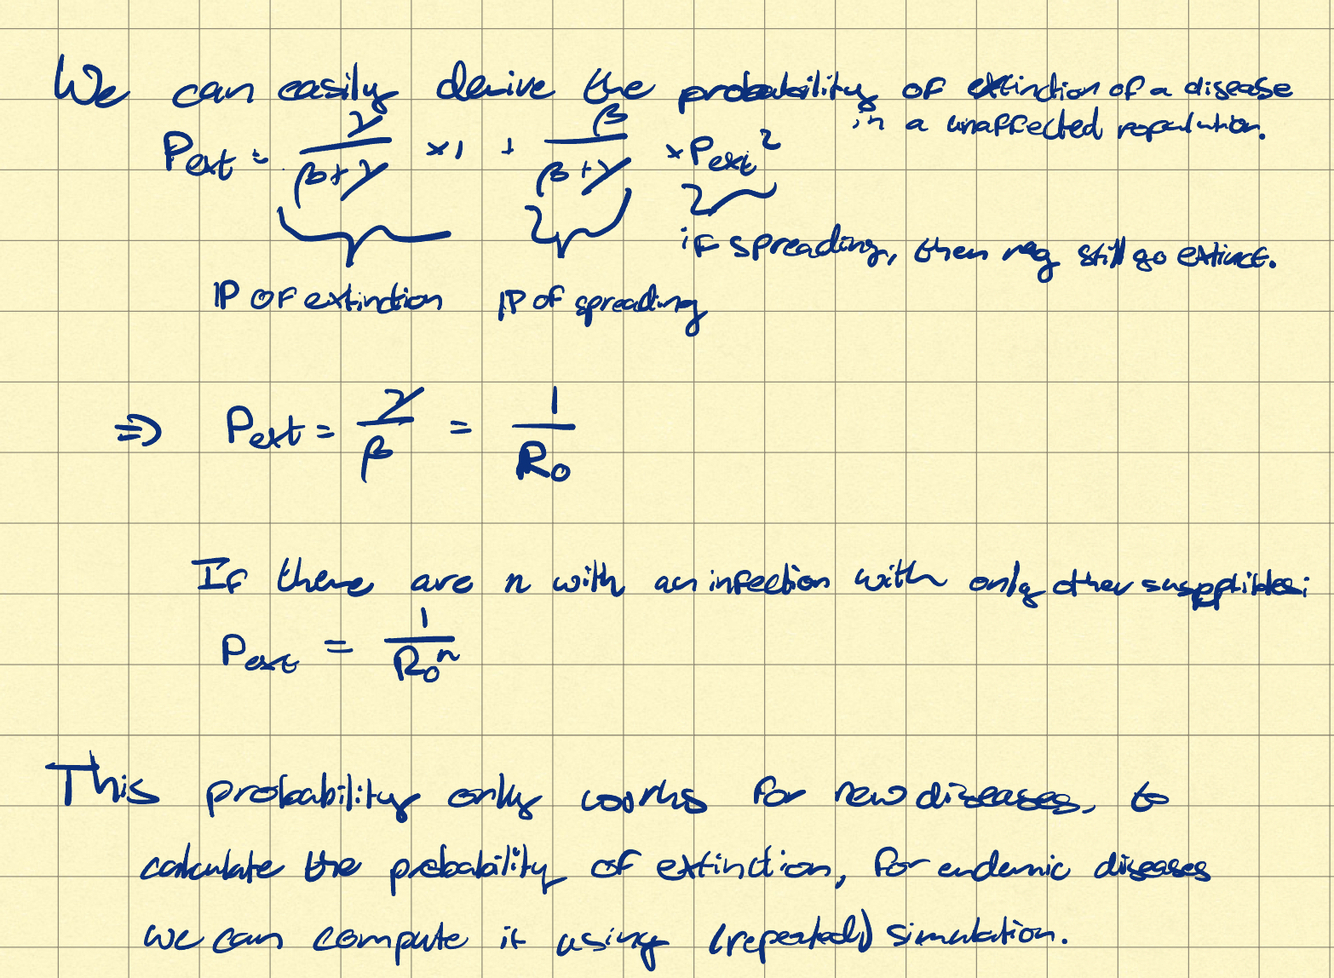 We can easily derive the probability of extinction of a disease
in a unaffected population.
P_ext = γ/(β+γ) × 1 + β/(β+γ) × P_ext²
if spreading, then may still go extinct.
ℙ of extinction ℙ of spreading
⇒ P_ext = γ/β = 1/R₀
If there are n with an infection with only other susceptibles:
P_ext = 1/R₀ⁿ
This probability only works for new diseases, to
calculate the probability of extinction, for endemic diseases
we can compute it using (repeated) simulation.